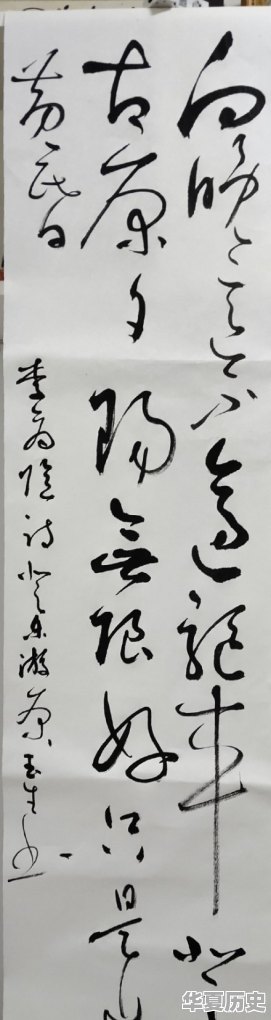 向晚意不適驅車登
古原夕陽無限好只是近
黄昏
李商隐诗登乐游原玉生书
华夏历史